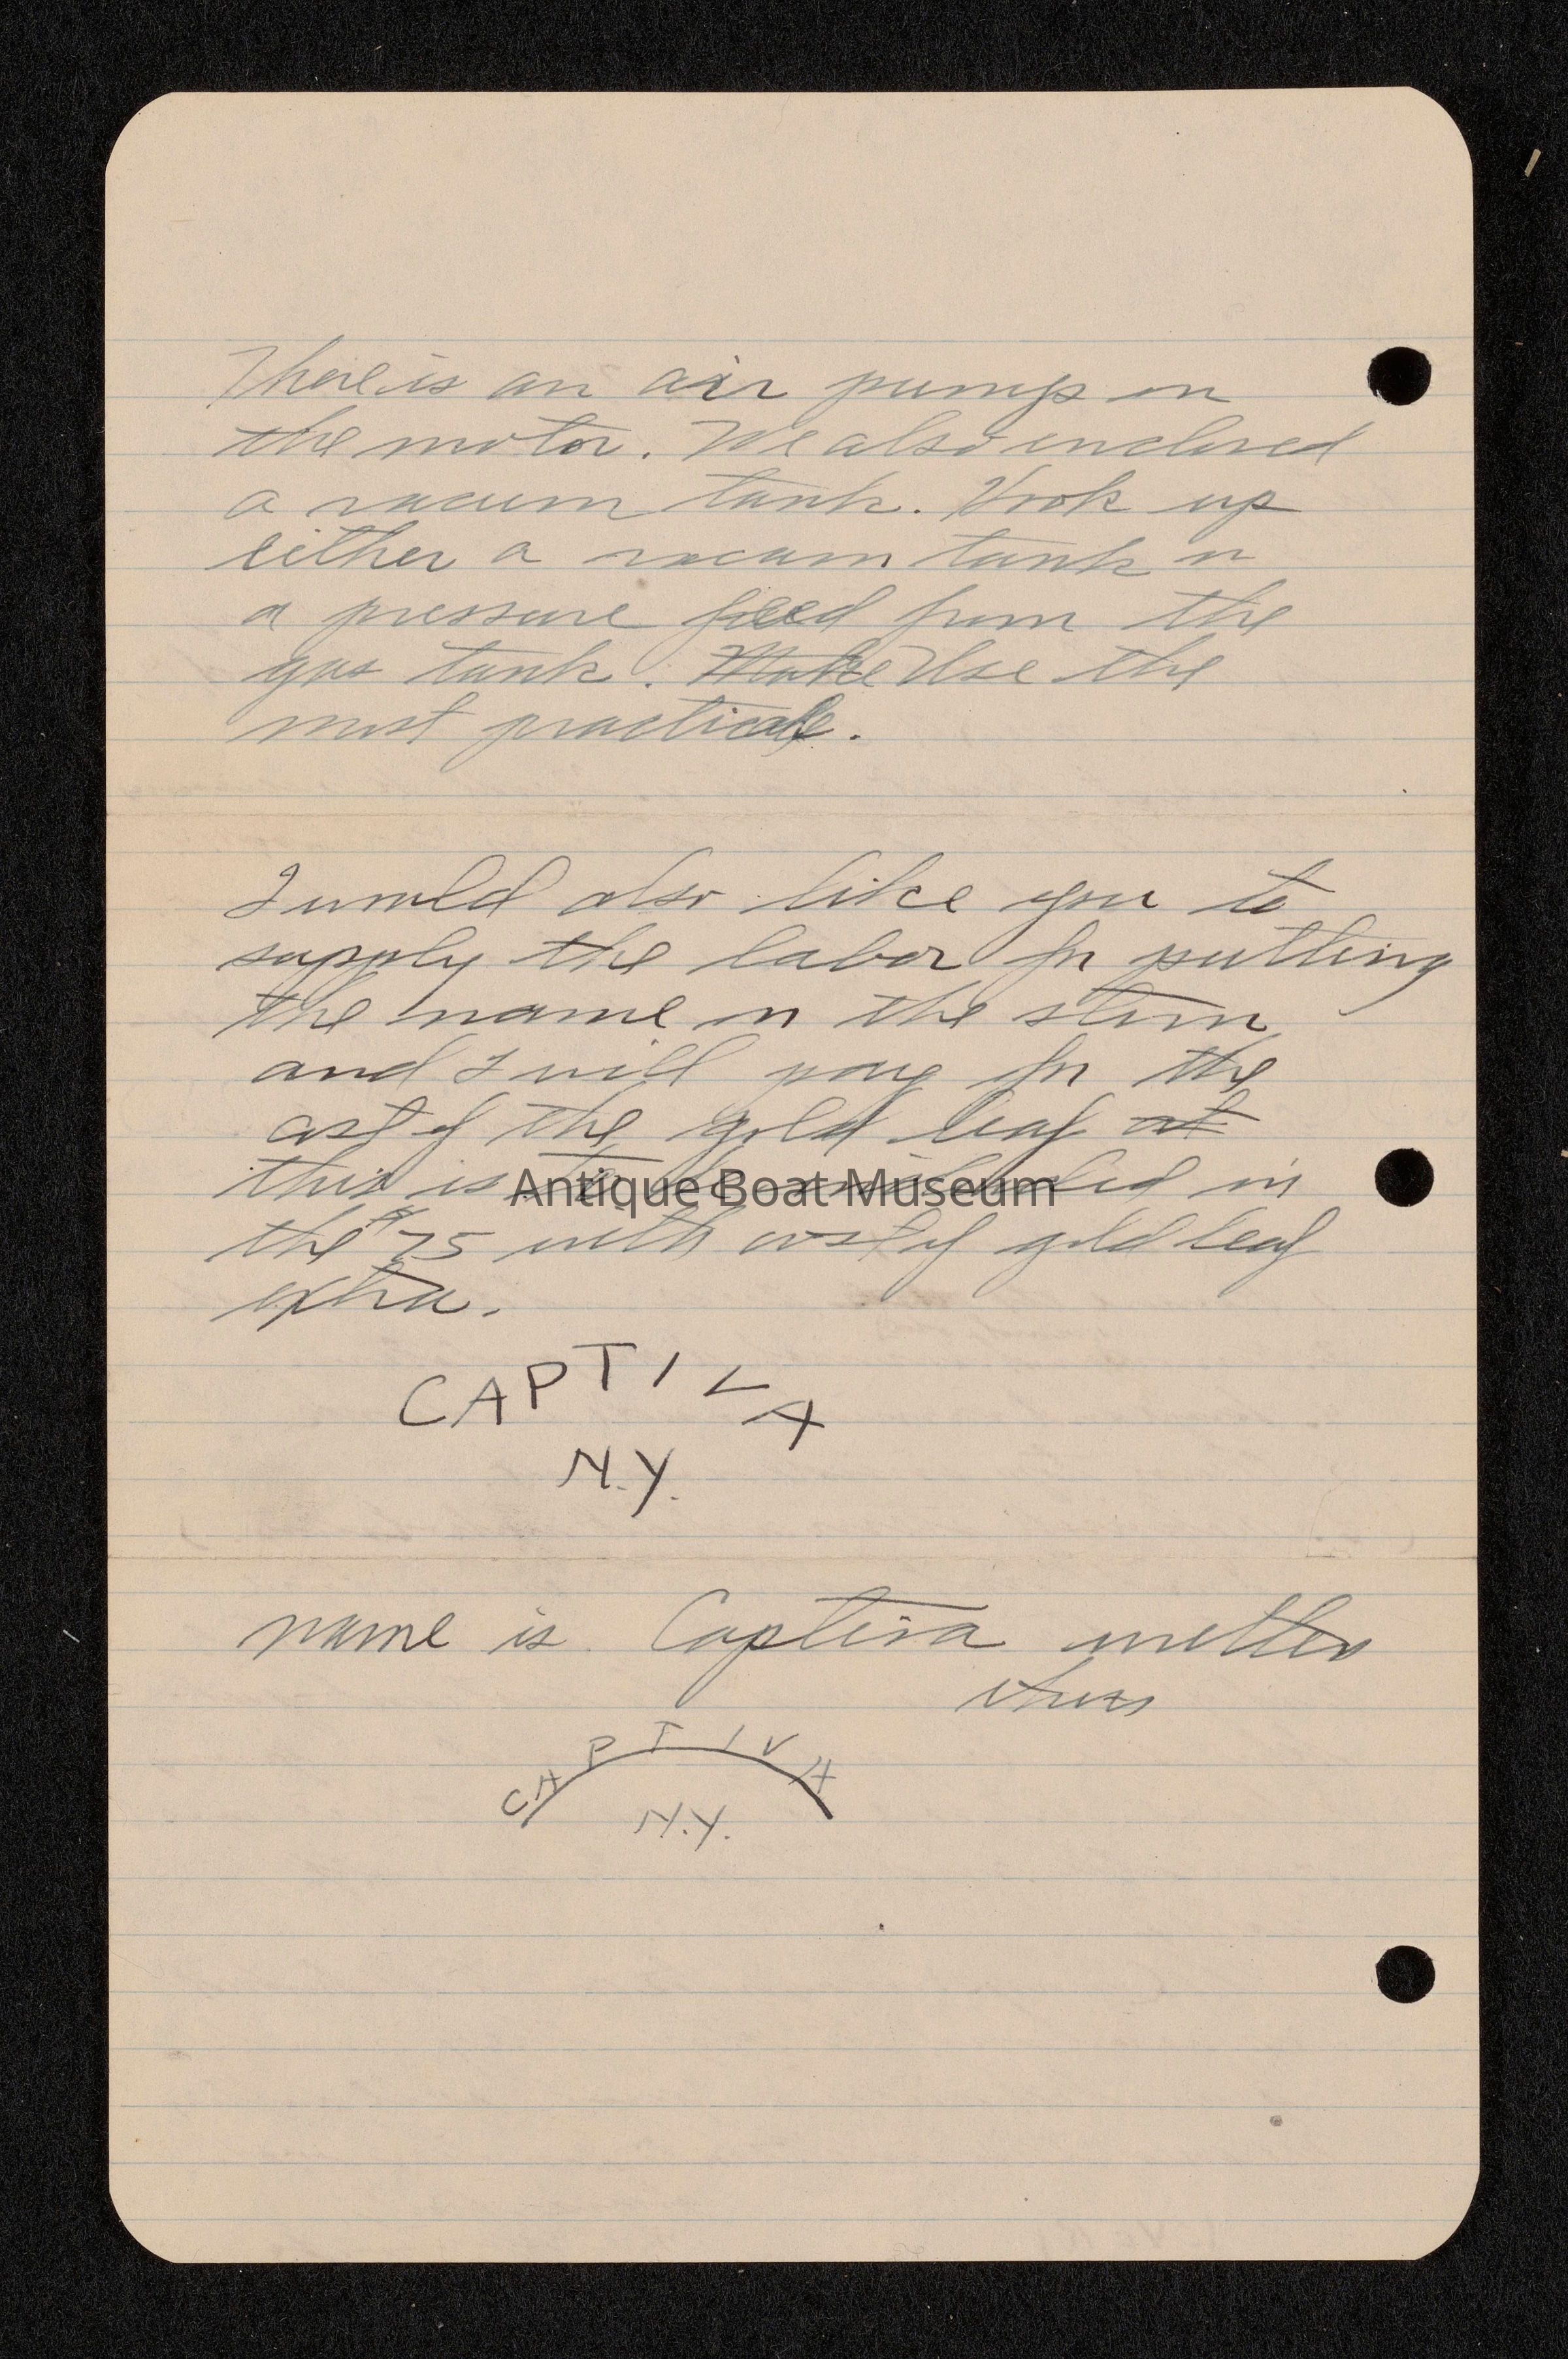 There is an air pump on
the motor. We also enclosed
a vacum tank. Hook up
either a vacum tank or
a pressure feed from the
gas tank. Make Use the
most practical.
I would also like you to
supply the labor for putting
the name on the stern
and I will pay for the
cost of the gold leaf at
this is to be included in
the $75 with cost of gold leaf
extra.
Antique Boat Museum
CAPTIVA
N.Y.
name is Captiva written
thus
CAPTIVA
N.Y.